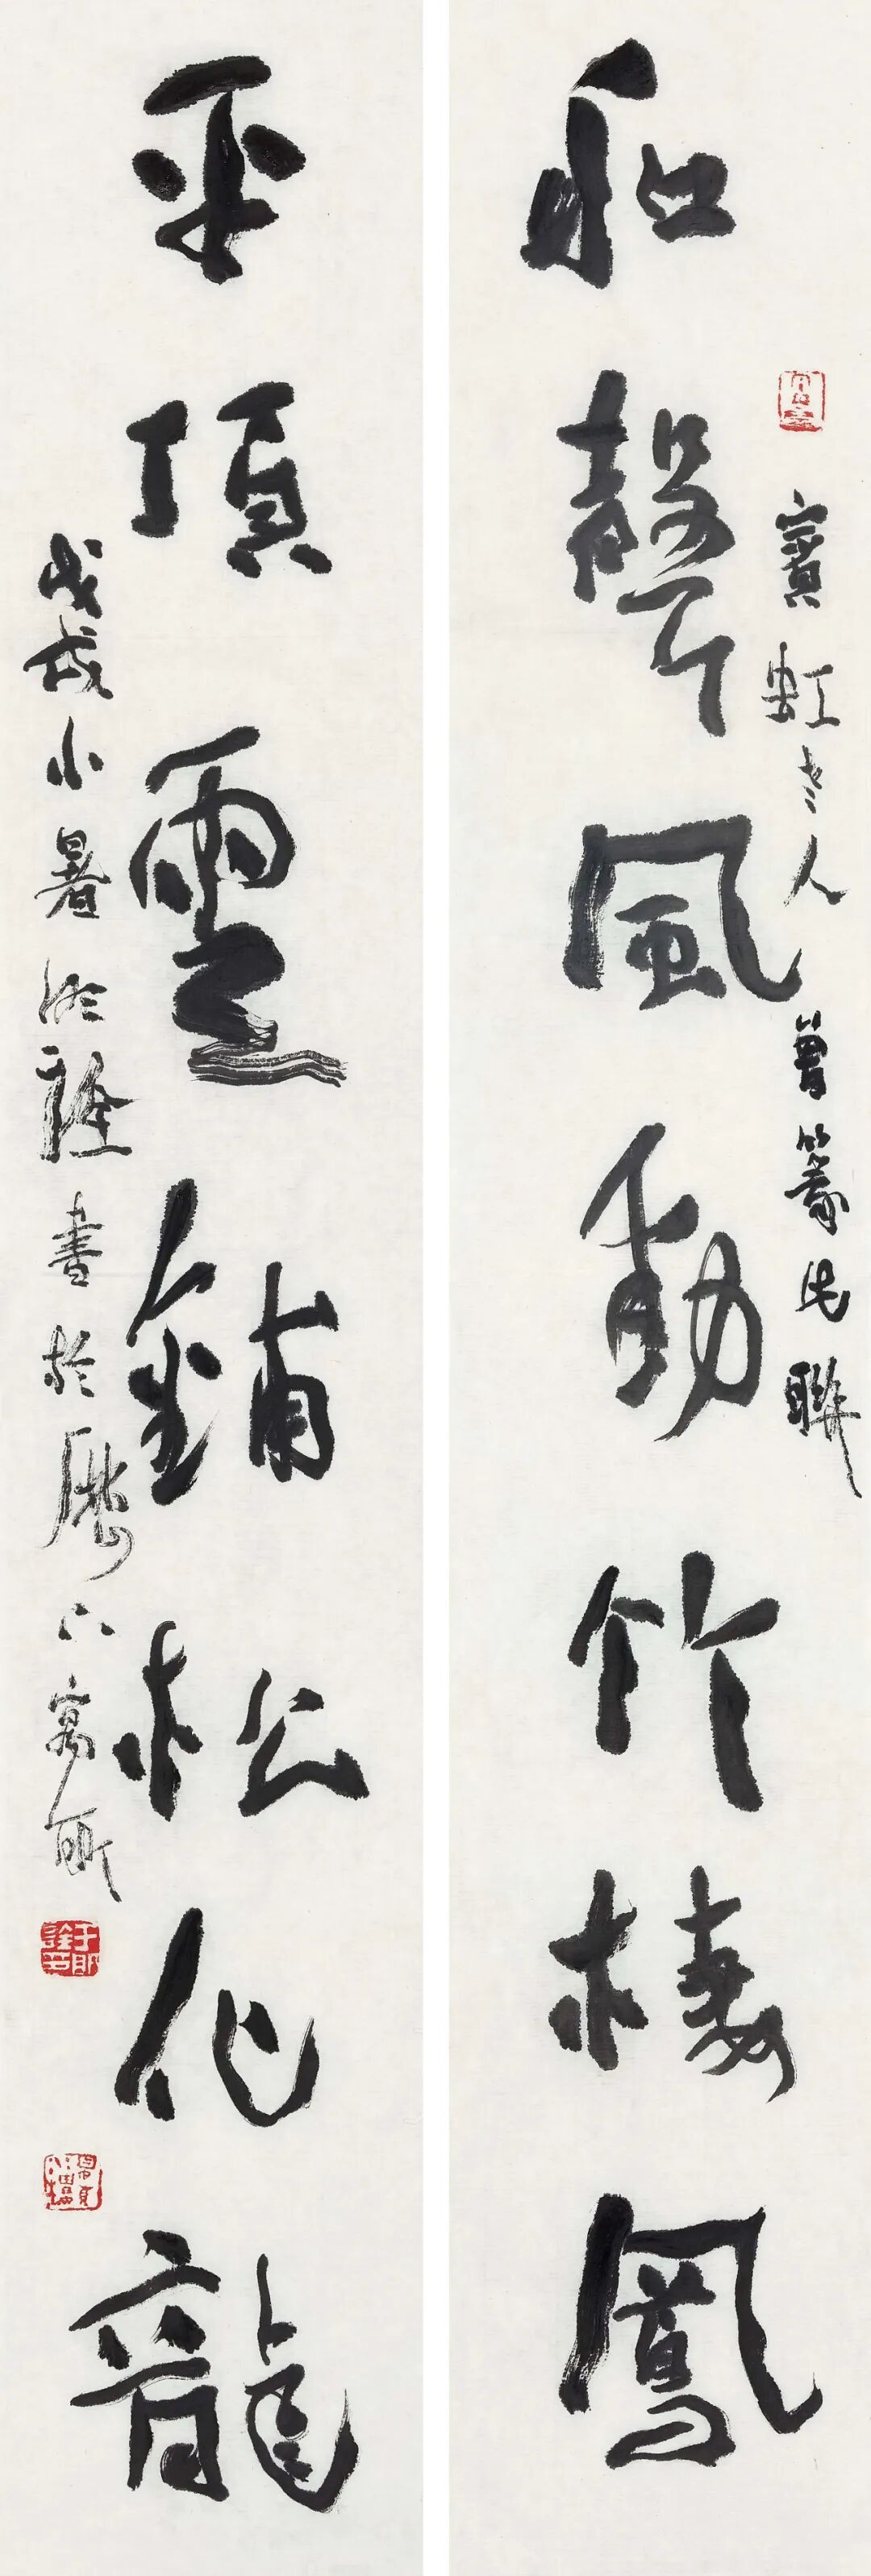 和聲風動竹棲鳳
賓虹老人曾篆此聯
平頂雲鋪松化龍
戊戌小暑明詮書於歷下寓所